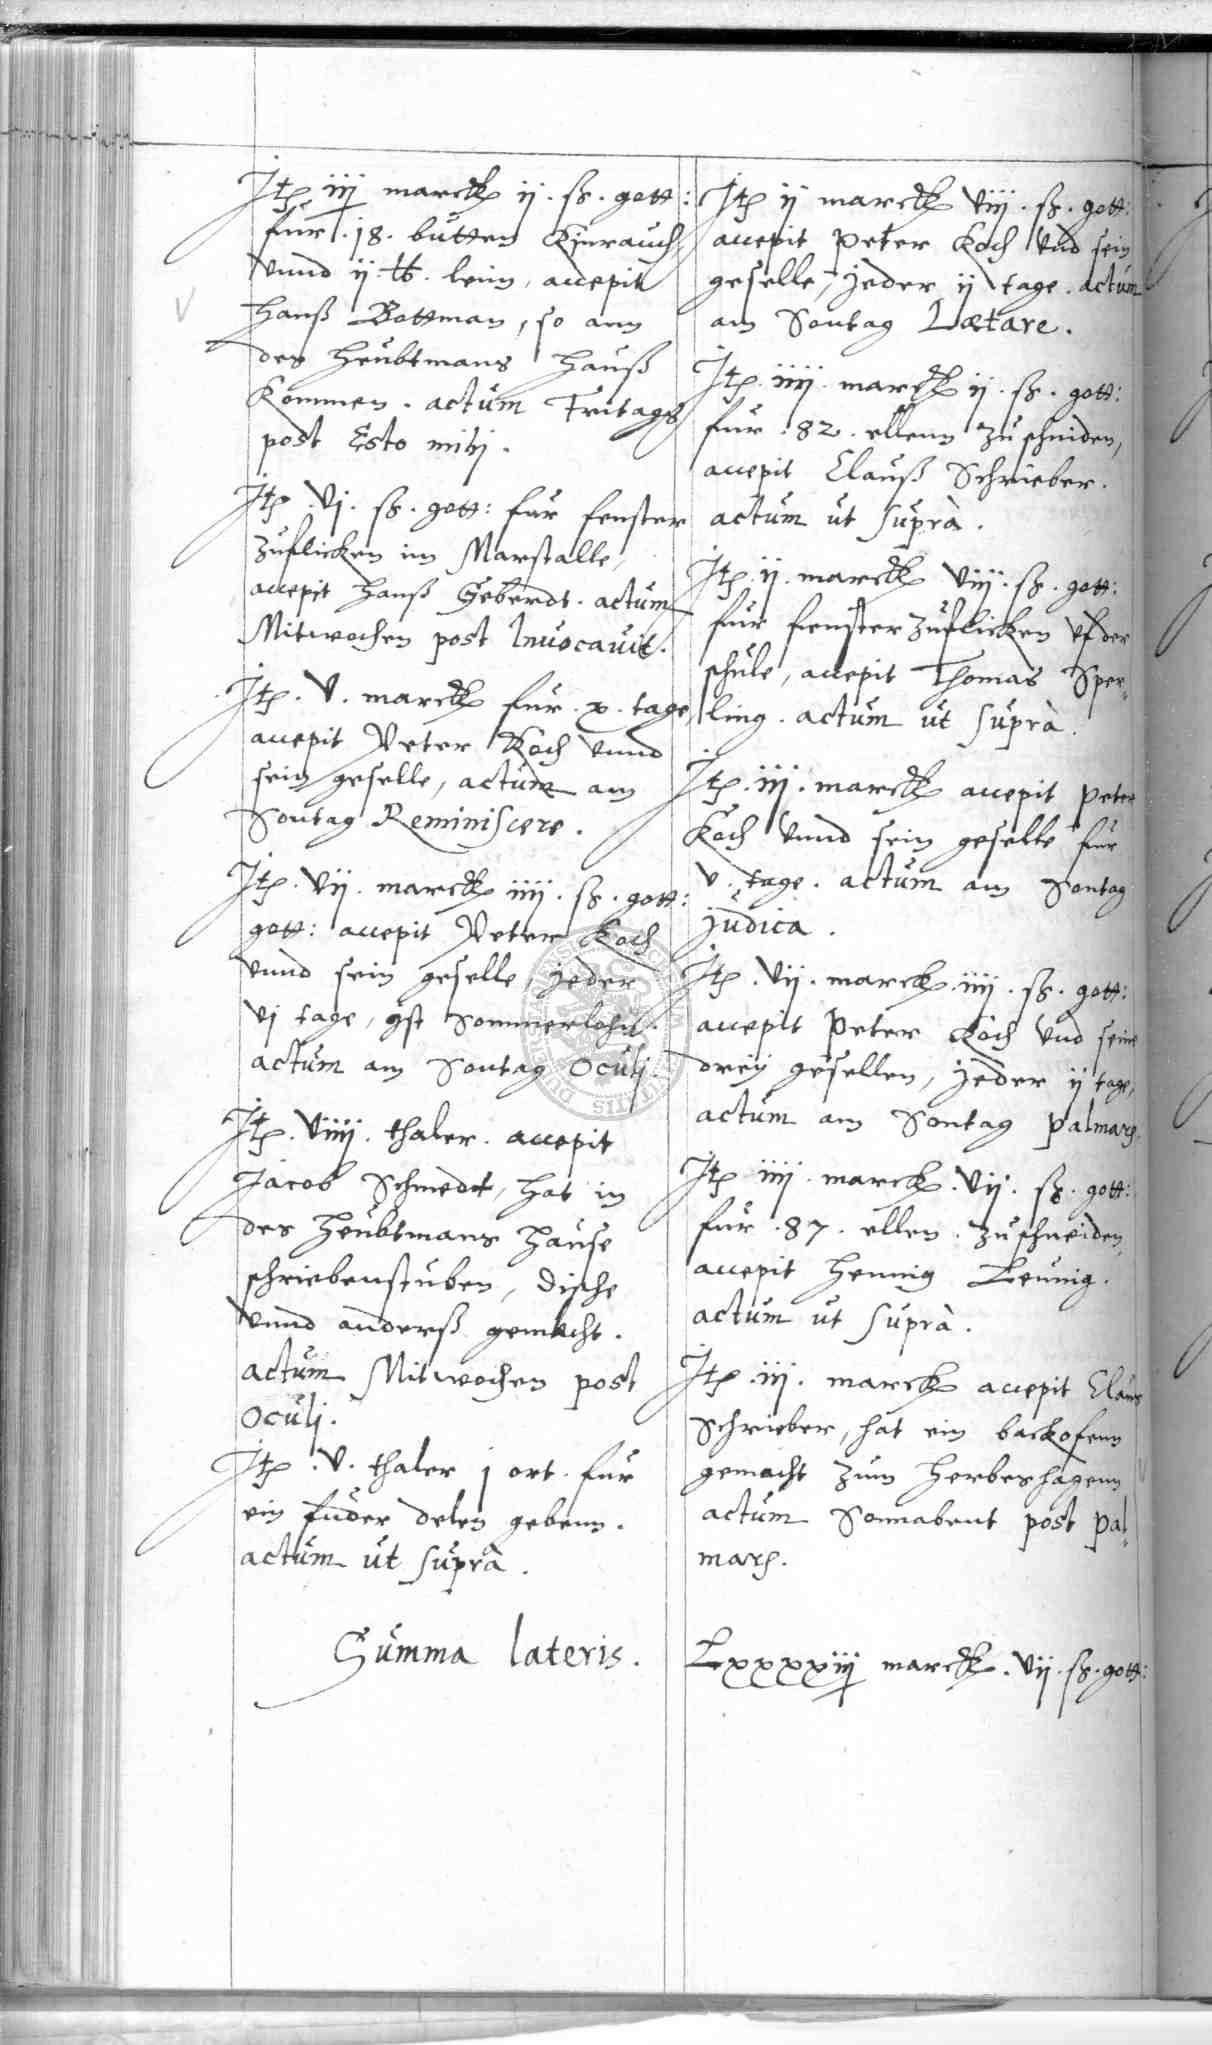 Itꝫ iij marck ij. ß. gott:
fur .18. butten Kinrauch,
vnnd ij. ℔. leim, accepit
Hanß Bottman, so ann
des Heubtmans Hauß
Kommen. actum Fritags
post Esto mihj.
Itꝫ. vj. ß. gott: fur fenster
zuflicken im Marstalle,
accepit Hanß Geberdt. actum
Mitwochen post Invocavit.
Itꝫ. v. marck fur .x. tage,
accepit Peter Koch vnnd
sein geselle, actum am
Sontag Reminiscere.
Itꝫ. vij. marck iiij. ß. gott:
gott: accepit Peter Koch
vnnd sein geselle, jeder
vj tage, ist Sommerlohn.
actum am Sontag Oculj.
Itꝫ. viiij. thaler. accepit
Jacob Schmedt, hat in
des Heubtmans Hause
schriebenstuben, Dische
vnnd anderß gemacht.
actum Mitwochen post
Oculj.
Itꝫ. v. thaler j ort. fur
ein fuder delen gebenn.
actum ut suprà.
Summa lateris.
Itꝫ ij marck viij. ß. gott:
accepit Peter Koch vnd sein
geselle, jeder ij tage. actum
am Sontag Lætare.
Itꝫ. iiij. marck ij. ß. gott:
fur .82. ellenn zuschniden,
accepit Clauß Schrieber.
actum ut suprà.
Itꝫ. ij. marck viij. ß. gott:
fur fenster zuflicken vf der
schule, accepit Thomas Sper-
ling. actum ut suprà.
Itꝫ. iij. marck accepit Peter
Koch vnnd sein geselle fur
v. tage. actum am Sontag
judica.
Itꝫ. vij. marck. iiij. ß. gott:
accepit Peter Koch vnd seine
dreij gesellen, jeder ij tage,
actum am Sontag palmarꝫ.
Itꝫ iiij. marck. vij. ß. gott:
fur .87. ellen. zuschneiden,
accepit Hennig Leunig.
actum ut suprà.
Itꝫ. iij. marck accepit Claus
Schrieber, hat ein backofenn
gemacht zum Herbershagenn
actum Sonnabent post pal-
marꝫ.
Lxxxxiij marck. vij. ß. gott: